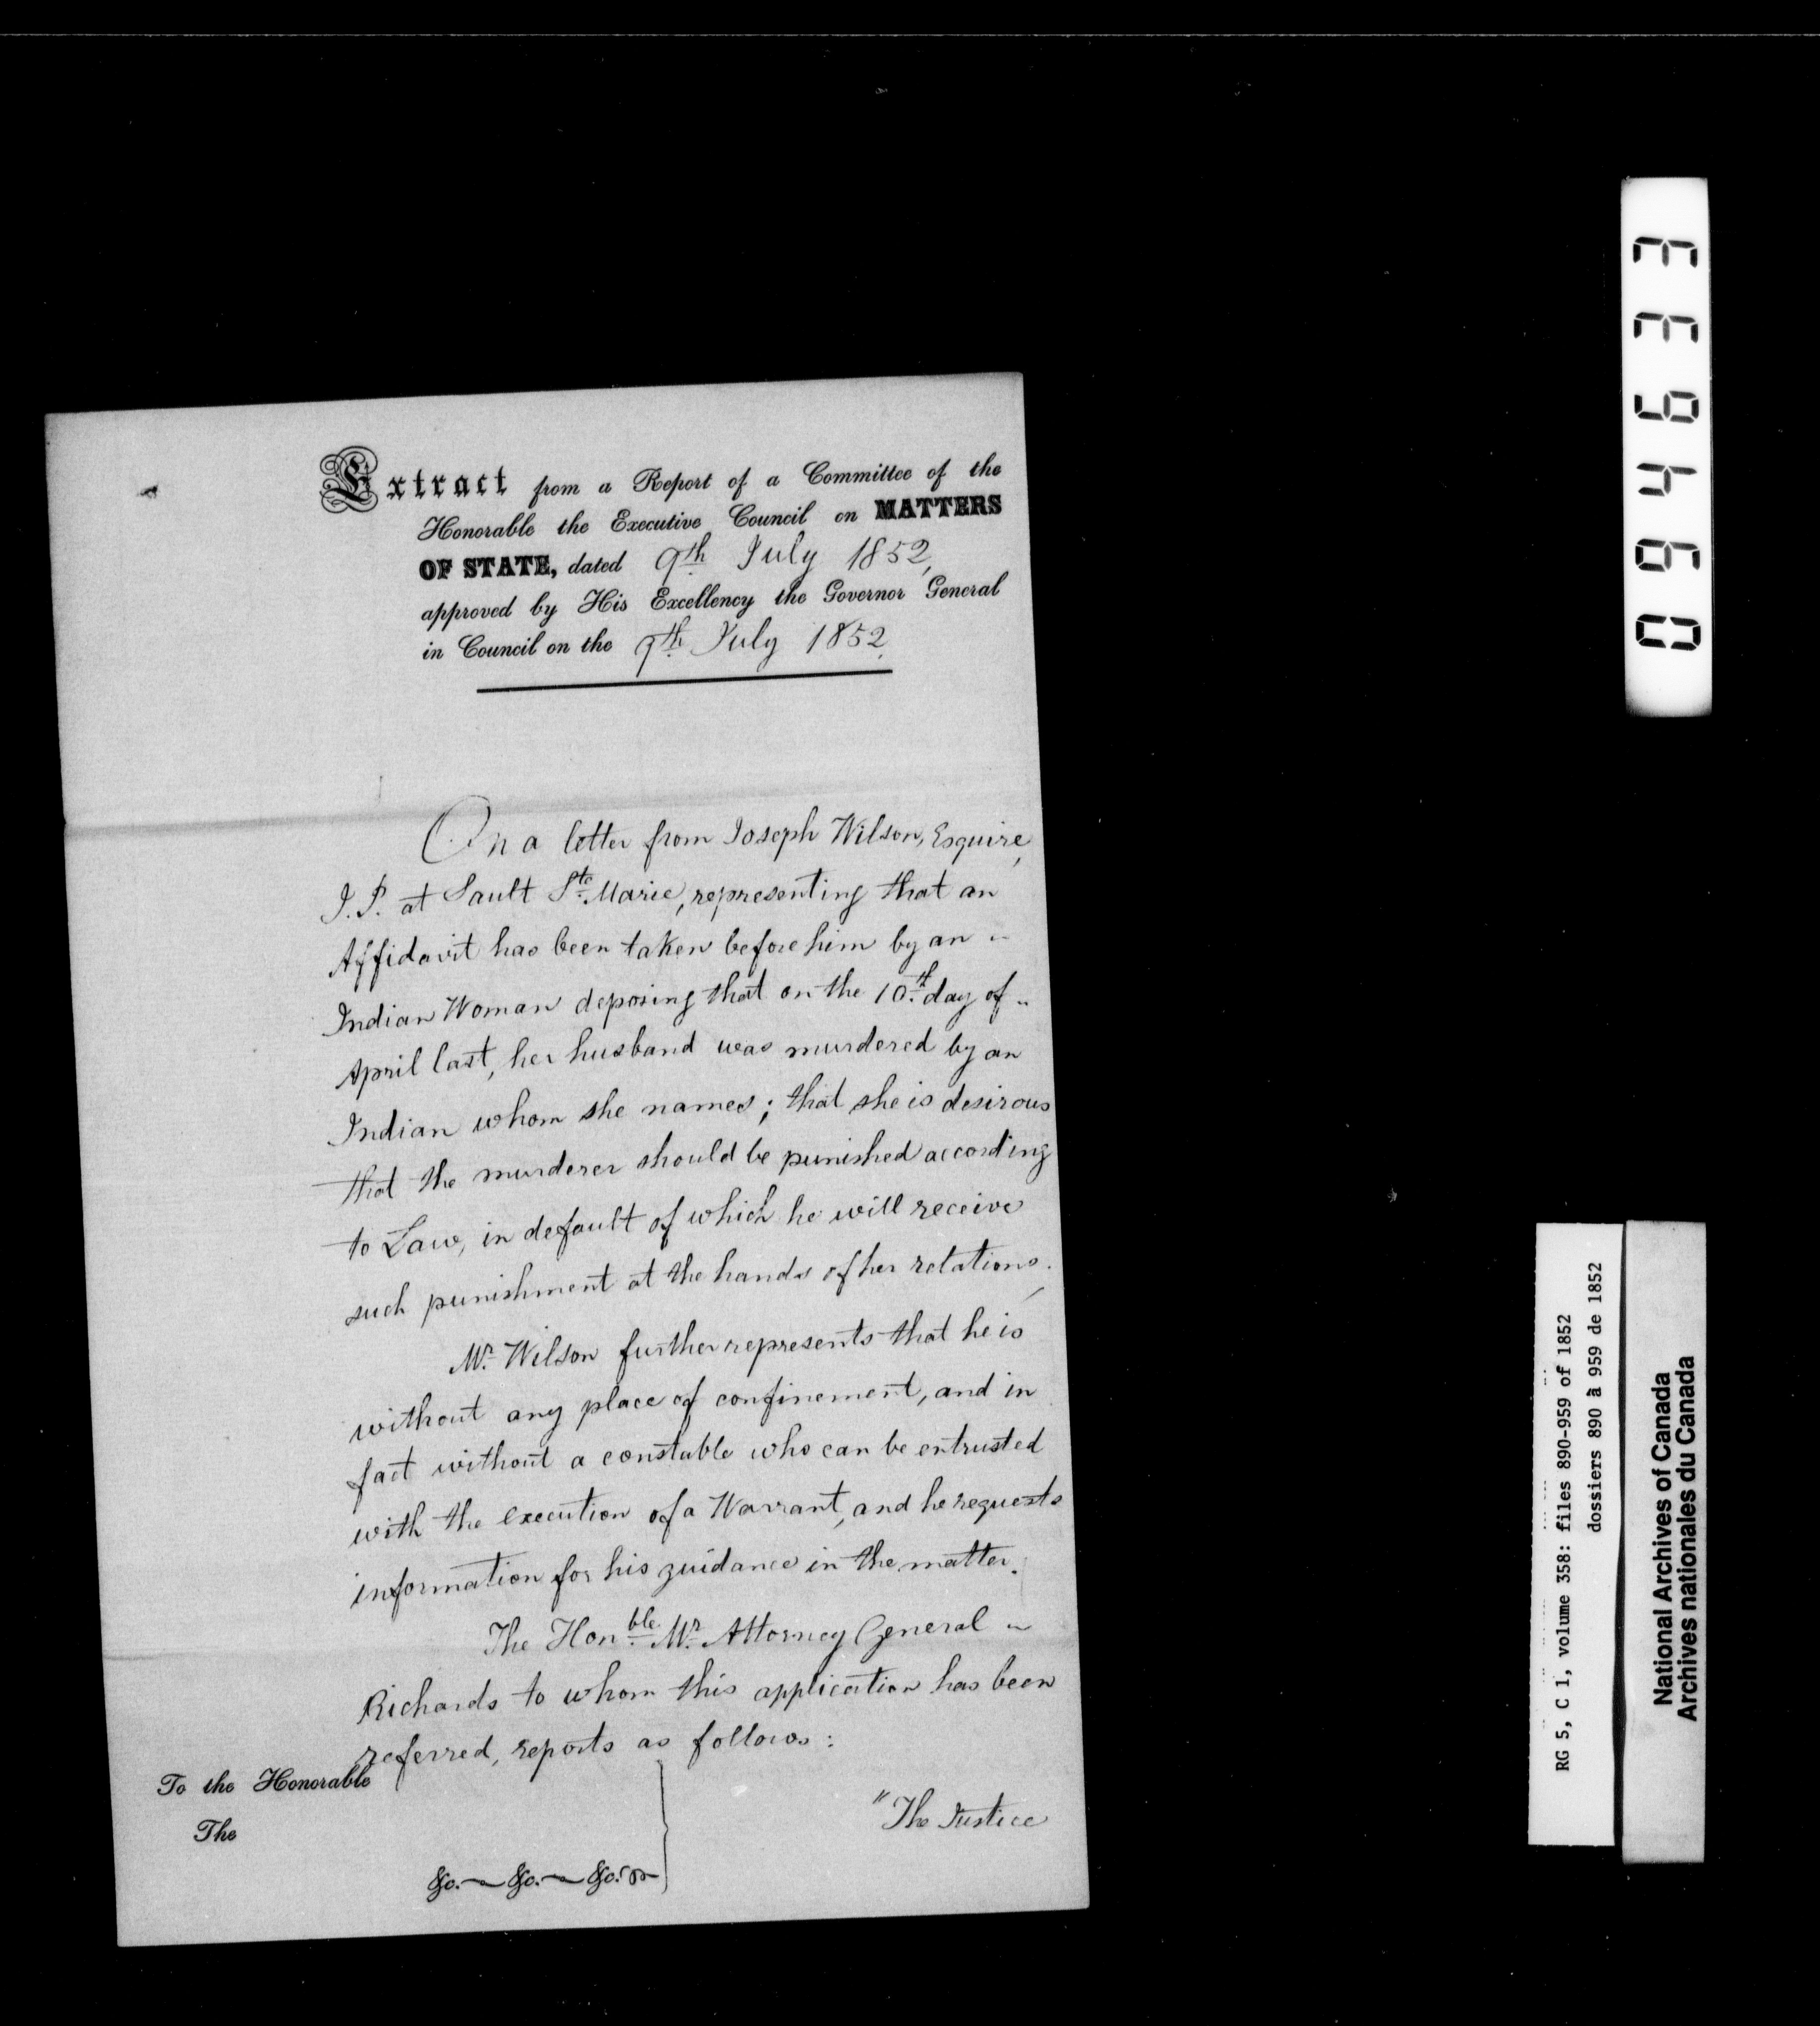 Extract from a Report of a Committee of the
Honorable the Executive Council on MATTERS
OF STATE, dated 9th July 1852,
approved by His Excellency the Governor General
in Council on the 9th July 1852.
On a letter from Joseph Wilson, Esquire,
J.P. at Sault Ste. Marie, representing that an
Affidavit has been taken before him by an
Indian Woman deposing that on the 10th day of
April last, her husband was murdered by an
Indian whom she names; that she is desirous
that the murderer should be punished according
to Law, in default of which he will receive
such punishment at the hands of her relations.
Mr. Wilson further represents that he is
without any place of confinement, and in
fact without a constable who can be entrusted
with the execution of a Warrant, and he requests
information for his guidance in the matter.
The Honble. Mr. Attorney General
Richards to whom this application has been
referred, reports as follows:
To the Honorable
The
&c. &c. &c.
"The Justice
094633
RG 5, C 1, volume 358: files 890-959 of 1852
dossiers 890 à 959 de 1852
National Archives of Canada
Archives nationales du Canada